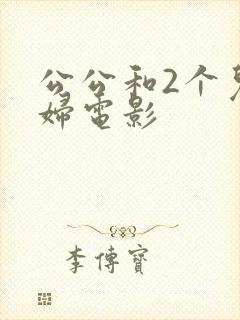 公公和2个
婦電影
李傳寶